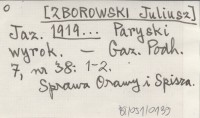 [ZBOROWSKI Juliusz]
Jaz. 1919... Paryski
wyrok. — Gaz. Podh.
7, nr 38: 1-2.
Sprawa Orawy i Spisza.